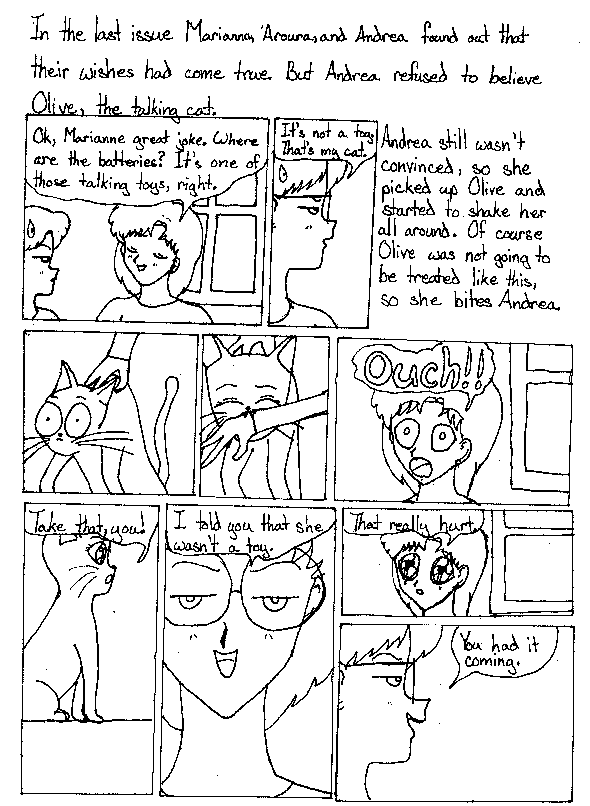 In the last issue Marianna, 'Aroura, and Andrea found out that
their wishes had come true. But Andrea refused to believe
Olive, the talking cat.
Ok, Marianne great joke. Where
are the batteries? It's one of
those talking toys, right.
It's not a toy.
That's my cat.
Andrea still wasn't
convinced, so she
picked up Olive and
started to shake her
all around. Of course
Olive was not going to
be treated like this,
so she bites Andrea.
Ouch!!
Take that, you!
I told you that she
wasn't a toy.
That really hurt.
You had it
coming.